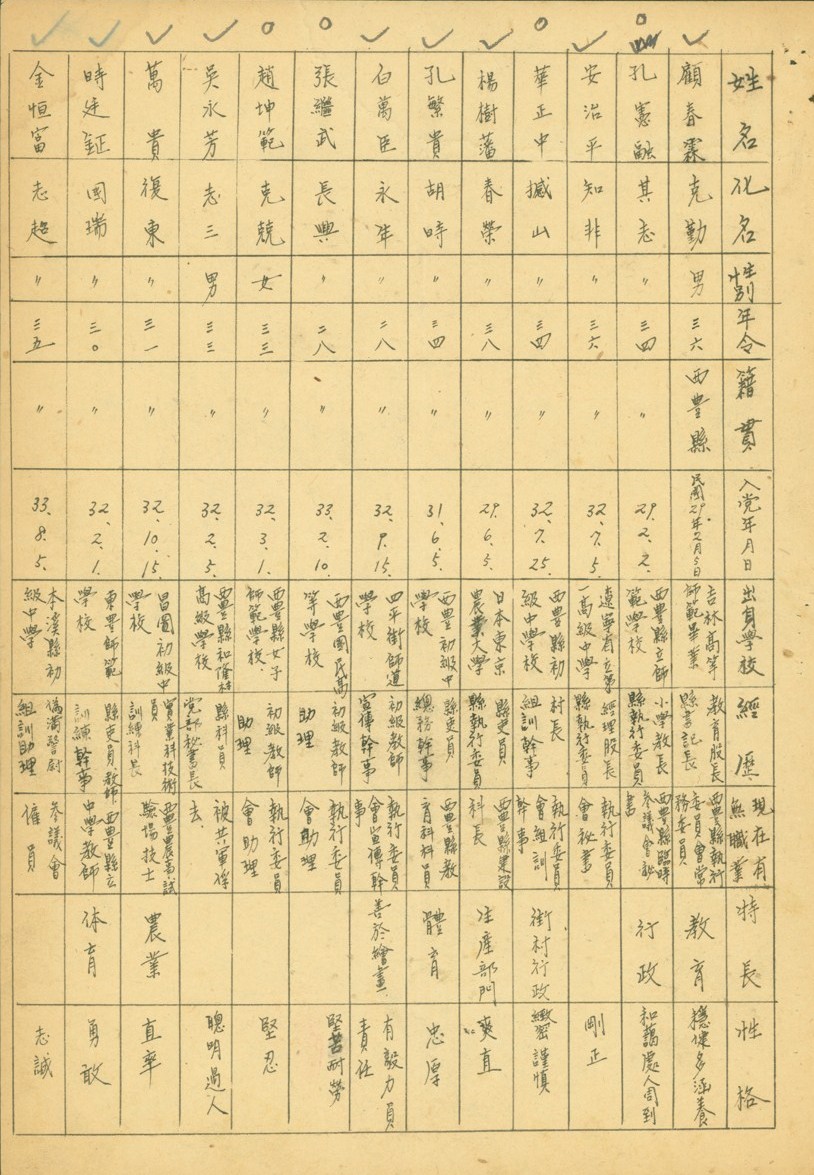 姓名 化名 性別 年令 籍貫 入党年月日 出身學校 經歷 現在有無職業 特長 性格
顧春霖 克勤 男 三六 西豊縣 民國29年2月5日 吉林高等師範畢業 教育股長 縣書記長 西豊縣執行委員會常務委員 教育 穩健多涵養
孔憲融 其志 〃 三四 〃 29.2.2. 西豊縣立師範學校 小學教長 縣執行委員 西豊縣臨時參議會秘書 行政 和藹處人周到
安治平 知非 〃 三六 〃 32.7.5. 遼寧省立第一高級中學 經理股長 縣執行委員 執行委員會秘書 剛正
華正中 撼山 〃 三四 〃 32.7.25. 西豊縣初級中學校 村長 組訓幹事 執行委員會組訓幹事 街村行政 緻密謹慎
楊樹藩 春榮 〃 三八 〃 29.6.5. 日本東京農業大學 縣吏員 縣執行委員 西豊縣建設科長 生産部門 爽直
孔繁貴 胡時 〃 三四 〃 31.6.5. 西豊初級中學校 縣吏員 總務幹事 西豊縣教育科科員 體育 忠厚
白萬臣 永年 〃 二八 〃 32.9.15. 四平街師道學校 初級教師 宣傳幹事 執行委員會宣傳幹事 善於繪畫 有毅力負責任
張繼武 長興 〃 二八 〃 33.2.10. 西豊國民高等學校 初級教師 助理 執行委員會助理 堅苦耐勞
趙坤範 克兢 女 三三 〃 32.3.1. 西豊縣女子師範學校. 初級教師 助理 執行委員會助理 堅忍
吳永芳 志三 男 三三 〃 32.2.5. 西豊縣和隆村高級學校 縣科員 党部秘書長 被共軍俘去. 聰明過人
萬貴 復東 〃 三一 〃 32.10.15. 昌圖初級中學校 實業科技術員 訓練科長 西豊農事試驗場技士 農業 直率
時廷鉦 國瑞 〃 三〇 〃 32.2.1. 東豊師範學校 縣吏員教師. 訓練幹事 西豊縣立中學教師 体育 勇敢
金恒富 志超 〃 三五 〃 33.8.5. 本溪縣初級中學 偽滿警尉 組訓助理 參議會僱員 志誠